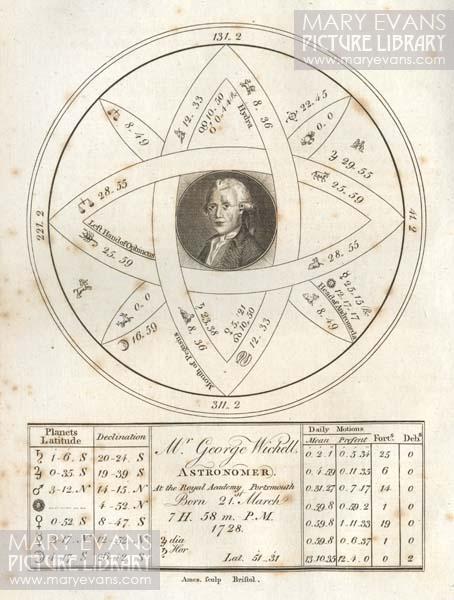 MARY EVANS
PICTURE LIBRARY
www.maryevans.com
131. 2
22.45
12. 33
10. 50
0. 44
Hydra
8. 36
0. 0
8. 49
29. 55
25. 59
28. 55
221. 2
41. 2
Left Hand of Ophiucus
25. 59
28. 55
25. 15
12. 17. 17
Head of Andromeda
0. 0
16. 59
23. 38
8. 36
Mouth of Pegasus
5. 21
10. 50
12. 33
8. 49
311. 2
Planets Latitude
Declination
♄ 1-6. S 20-24. S
♃ 0-35. S 19-39 S
♂ 3-12. N 14-15. N
4-52. N
♀ 0-52 S 8-47. S
Mr. George Witchell,
ASTRONOMER.
At the Royal Academy Portsmouth
Born 21st March
7 H. 58 m. P.M.
1728.
♃ dia
♄ Hor
Lat. 51.31
Daily Motions
Mean Present Forts. Debs.
0. 2. 1 0. 5. 34 25 0
0. 4. 59 0. 11. 35 6 0
0. 31. 27 0. 7. 17 14 0
0. 59. 8 0. 59. 2 1 0
0. 59. 8 1. 11. 33 19 0
0. 59. 8 0. 6. 37 1 0
13. 10. 35 12. 4. 0 0 2
MARY EVANS
PICTURE LIBRARY
www.maryevans.com
Ames. sculp Bristol.